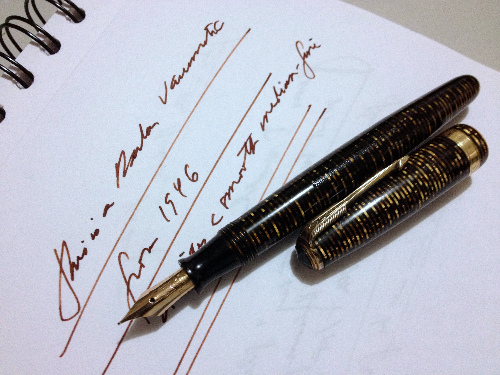 This is a Parker Vacumatic
from 1946
smooth medium-fine